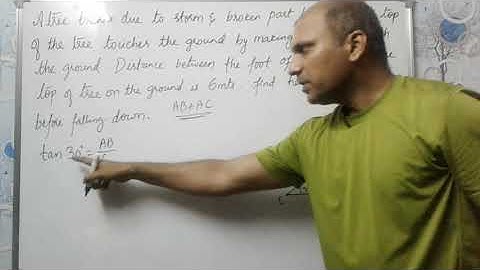 A tree breaks due to storm & broken part top
of the tree touches the ground by making
the ground. Distance between the foot of
top of tree on the ground is 6mts. find
before falling down. AB+AC
tan 30° = AB